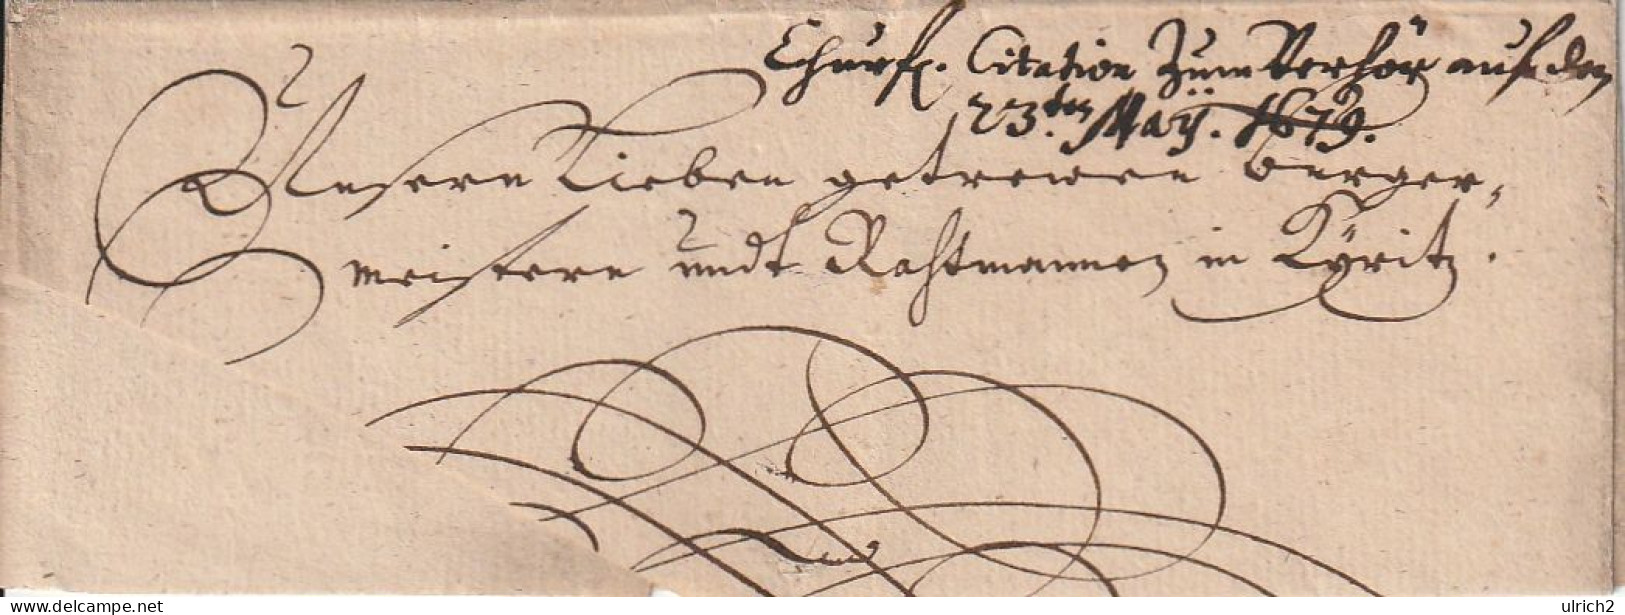 Churfl. Citation Zum Verhör auf den
23ten Maÿ. 1679.
Unsern Lieben getrewen Burger-
meistern undt Rahtmannen in Kÿritz.
www.delcampe.net
ulrich2